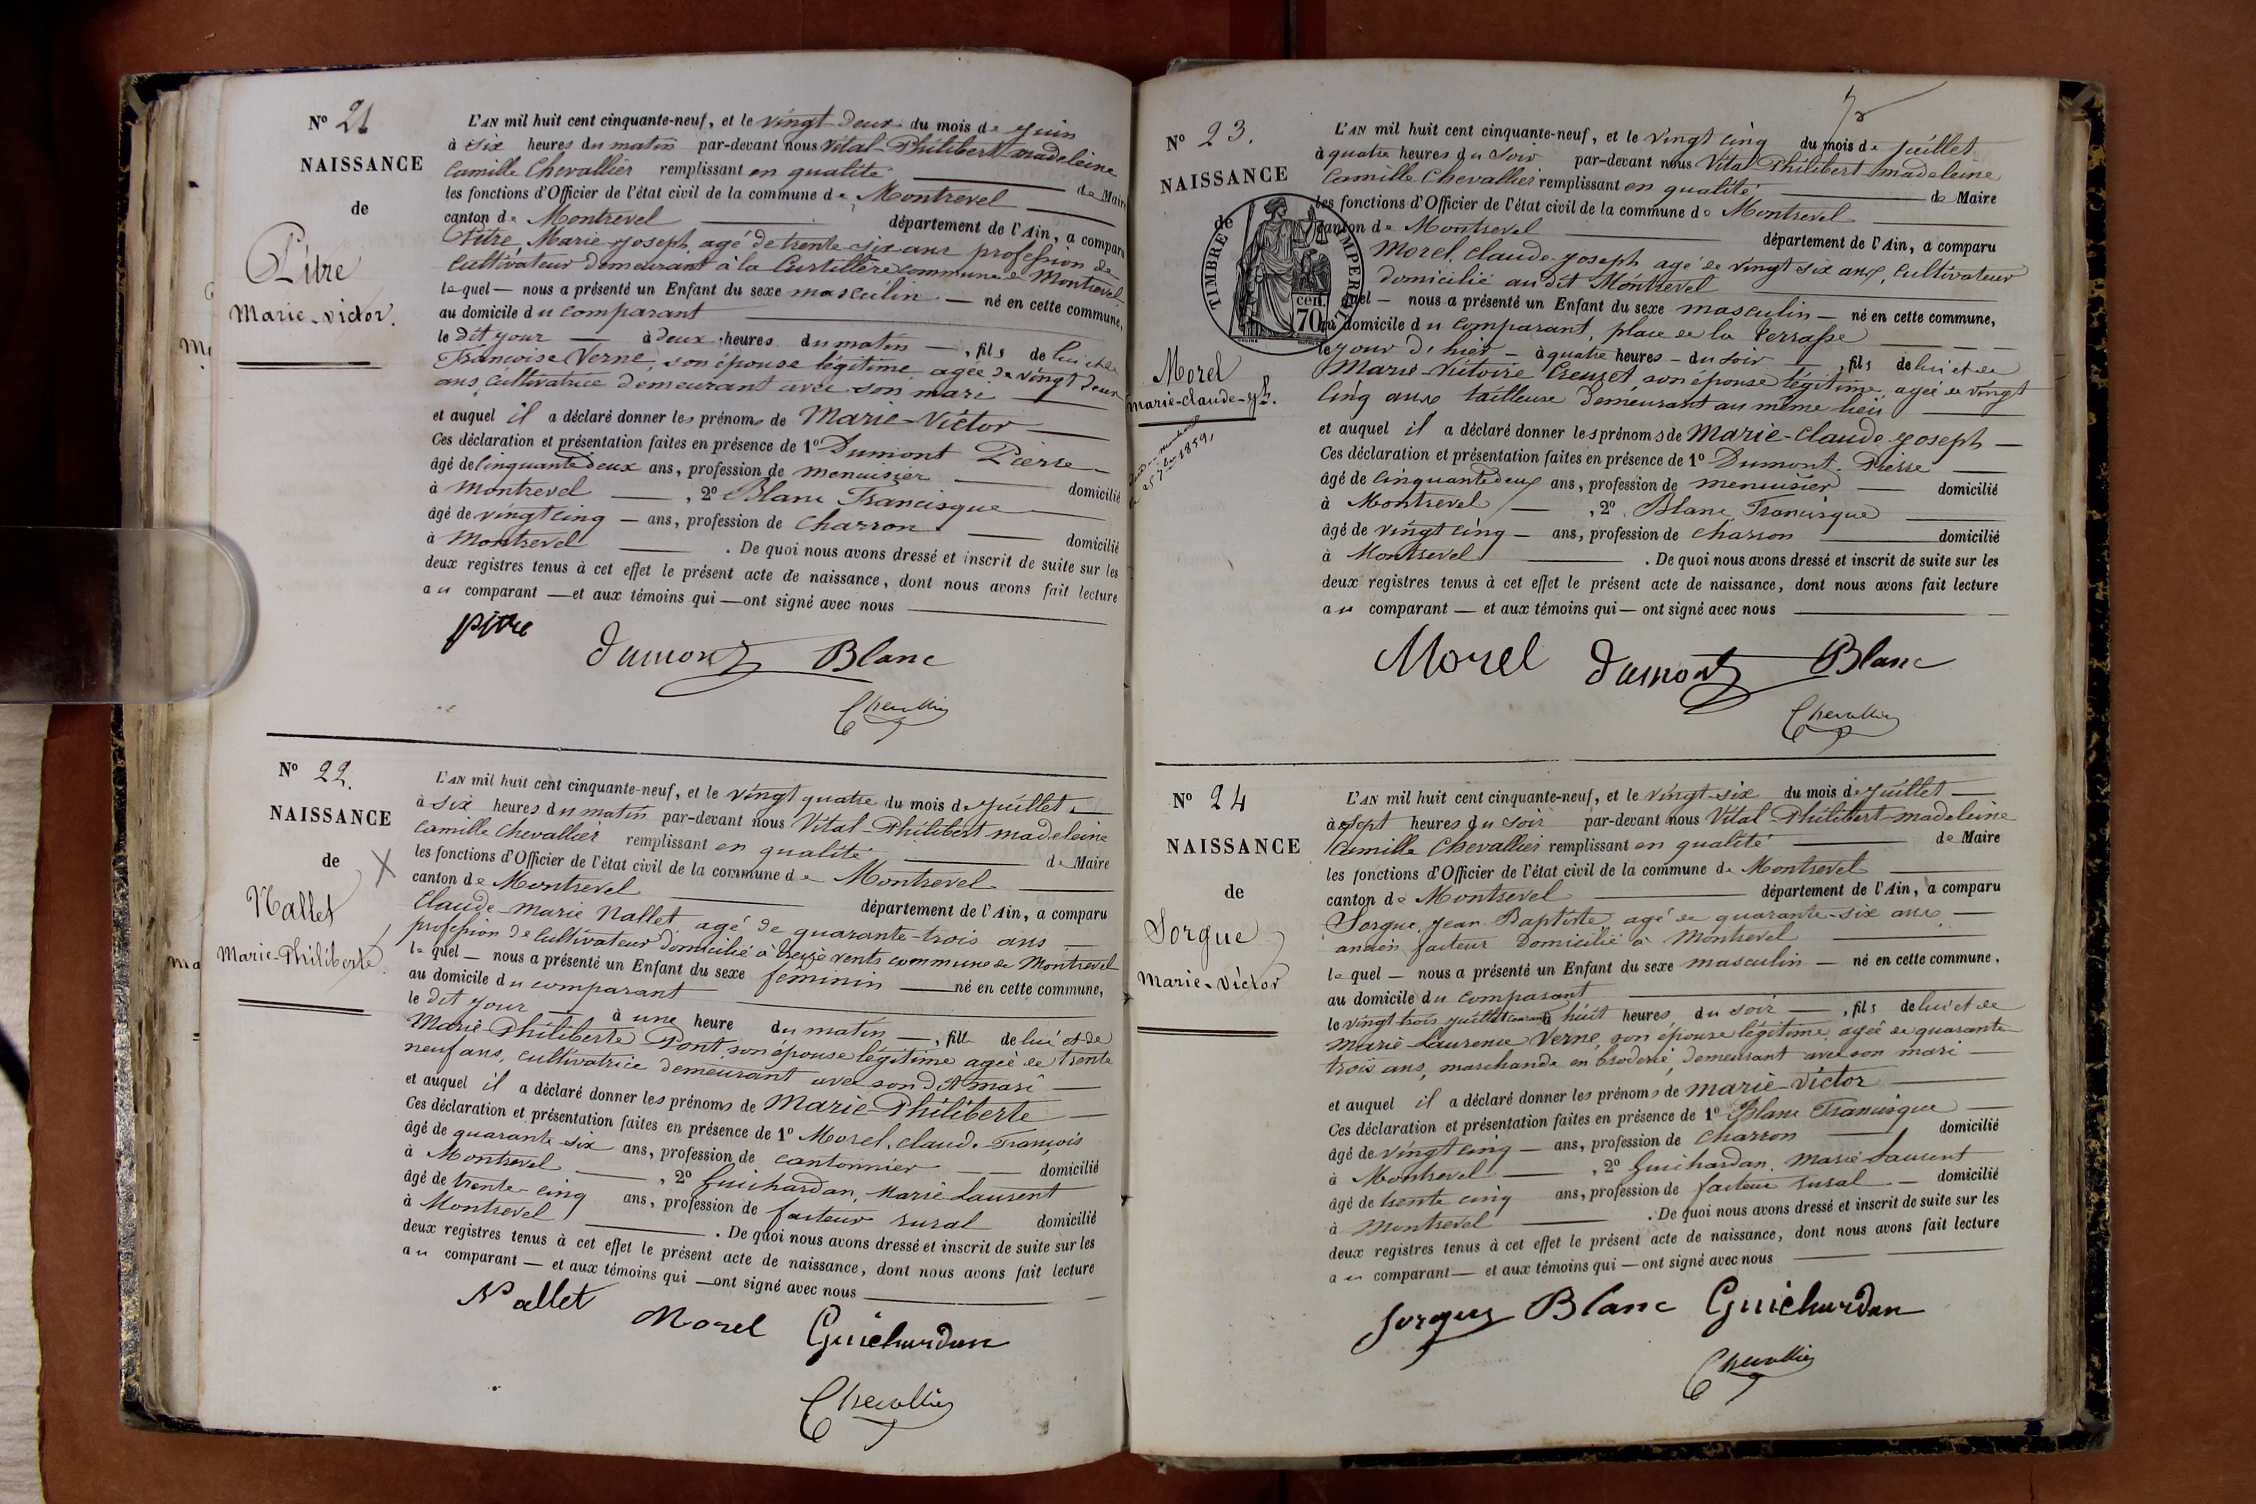 Nº 21
NAISSANCE
de
Pitre
Marie-Victor.
L'AN mil huit cent cinquante-neuf, et le vingt deux du mois de Juin
à six heures du matin par-devant nous Vital-Philibert madeleine
Camille Chevallier remplissant en qualité de Maire
les fonctions d'Officier de l'état civil de la commune de Montrevel
canton de Montrevel département de l'Ain, a comparu
Pitre Marie Joseph agé de trente six ans profession de
Cultivateur demeurant à la Curtillère commune de Montrevel
lequel — nous a présenté un Enfant du sexe masculin — né en cette commune,
au domicile du comparant
le dit jour — à deux heures du matin —, fils de lui et de
Françoise Verne, son épouse légitime agée de vingt deux
ans, Cultivatrice demeurant avec son mari
et auquel il a déclaré donner les prénoms de Marie-Victor
Ces déclaration et présentation faites en présence de 1º Dumont Pierre
âgé de cinquante deux ans, profession de menuisier domicilié
à Montrevel, 2º Blanc Francisque
âgé de vingt cinq — ans, profession de charron domicilié
à Montrevel. De quoi nous avons dressé et inscrit de suite sur les
deux registres tenus à cet effet le présent acte de naissance, dont nous avons fait lecture
au comparant — et aux témoins qui — ont signé avec nous
pitre
dumont Blanc
Chevallier
Nº 22.
NAISSANCE
de
X
Nallet
Marie-Philiberte.
L'AN mil huit cent cinquante-neuf, et le vingt quatre du mois de Juillet
à six heures du matin par-devant nous Vital-Philibert madeleine
Camille Chevallier remplissant en qualité de Maire
les fonctions d'Officier de l'état civil de la commune de Montrevel
canton de Montrevel département de l'Ain, a comparu
Claude-Marie Nallet agé de quarante-trois ans
profession de cultivateur domicilié à treize vents commune de Montrevel
lequel — nous a présenté un Enfant du sexe féminin — né en cette commune,
au domicile du comparant
le dit jour — à une heure du matin —, fille de lui et de
Marie-Philiberte Pont, son épouse légitime agée de trente
neuf ans, cultivatrice demeurant avec son dit mari
et auquel il a déclaré donner les prénoms de Marie-Philiberte
Ces déclaration et présentation faites en présence de 1º Morel, claude François
âgé de quarante-six ans, profession de cantonnier domicilié
à Montrevel, 2º Guichardan, Marie Laurent
âgé de trente-cinq ans, profession de facteur rural domicilié
à Montrevel. De quoi nous avons dressé et inscrit de suite sur les
deux registres tenus à cet effet le présent acte de naissance, dont nous avons fait lecture
au comparant — et aux témoins qui — ont signé avec nous
Nallet Morel Guichardan
Chevallier
Nº 23.
NAISSANCE
de
TIMBRE IMPERIAL
cen. 70
Morel
marie-claude-jh.
1859
L'AN mil huit cent cinquante-neuf, et le vingt cinq du mois de Juillet
à quatre heures du soir par-devant nous Vital Philibert madeleine
Camille Chevallier remplissant en qualité de Maire
les fonctions d'Officier de l'état civil de la commune de Montrevel
canton de Montrevel département de l'Ain, a comparu
Morel, claude-joseph agé de vingt six ans, cultivateur
domicilié au dit Montrevel
lequel — nous a présenté un Enfant du sexe masculin — né en cette commune,
au domicile du comparant, place de la terrasse
le jour d'hier — à quatre heures — du soir —, fils de lui et de
Marie-Victoire Creuzet, son épouse légitime, agée de vingt
cinq ans tailleuse demeurant au même lieu
et auquel il a déclaré donner les prénoms de Marie-claude-joseph —
Ces déclaration et présentation faites en présence de 1º Dumont Pierre
âgé de cinquante deux ans, profession de menuisier domicilié
à Montrevel, 2º Blanc Francisque
âgé de vingt cinq — ans, profession de charron domicilié
à Montrevel. De quoi nous avons dressé et inscrit de suite sur les
deux registres tenus à cet effet le présent acte de naissance, dont nous avons fait lecture
au comparant — et aux témoins qui — ont signé avec nous
Morel dumont Blanc
Chevallier
Nº 24
NAISSANCE
de
Sorgue
Marie-Victor
L'AN mil huit cent cinquante-neuf, et le vingt-six du mois de Juillet —
à sept heures du soir par-devant nous Vital-Philibert-madeleine
Camille Chevallier remplissant en qualité de Maire
les fonctions d'Officier de l'état civil de la commune de Montrevel
canton de Montrevel département de l'Ain, a comparu
Sorgue, Jean Baptiste agé de quarante-six ans —
ancien facteur domicilié à Montrevel
lequel — nous a présenté un Enfant du sexe masculin — né en cette commune,
au domicile du comparant
le vingt trois juillet courant à huit heures du soir —, fils de lui et de
Marie-Laurence Verne, son épouse légitime, agée de quarante
trois ans, marchande en broderie, demeurant avec son mari —
et auquel il a déclaré donner les prénoms de marie-victor
Ces déclaration et présentation faites en présence de 1º Blanc Francisque
âgé de vingt cinq — ans, profession de charron domicilié
à Montrevel, 2º Guichardan, Marie Laurent
âgé de trente cinq ans, profession de facteur rural — domicilié
à Montrevel. De quoi nous avons dressé et inscrit de suite sur les
deux registres tenus à cet effet le présent acte de naissance, dont nous avons fait lecture
au comparant — et aux témoins qui — ont signé avec nous
Sorgue Blanc Guichardan
Chevallier